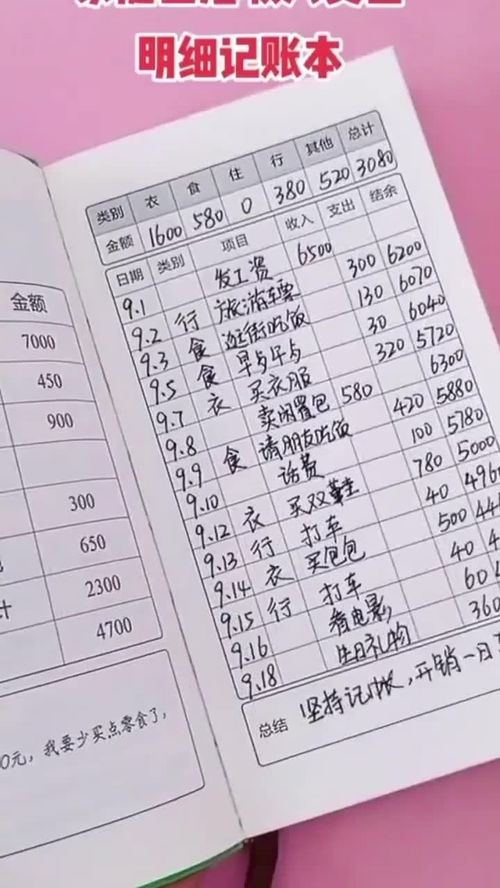 明细记账本
金额
7000
450
900
300
650
计 2300
4700
0元，我要少买点零食了，
类别 衣 食 住 行 其他 总计
金额 1600 580 0 380 520 3080
日期 类别 项目 收入 支出 结余
9.1 发工资 6500
9.2 行 旅游车票 300 6200
9.3 食 逛街吃饭 130 6070
9.5 食 早与午与 30 6040
9.7 衣 买衣服 320 5720
9.8 卖闲置包 580 6300
9.9 食 请朋友吃饭 420 5880
9.10 话费 100 5780
9.12 衣 买双鞋 780 5000
9.13 行 打车 40 496
9.14 衣 买包包 500 44
9.15 行 打车 40 4
9.16 看电影 60
9.18 生日礼物 360
总结 坚持记账，开销一日